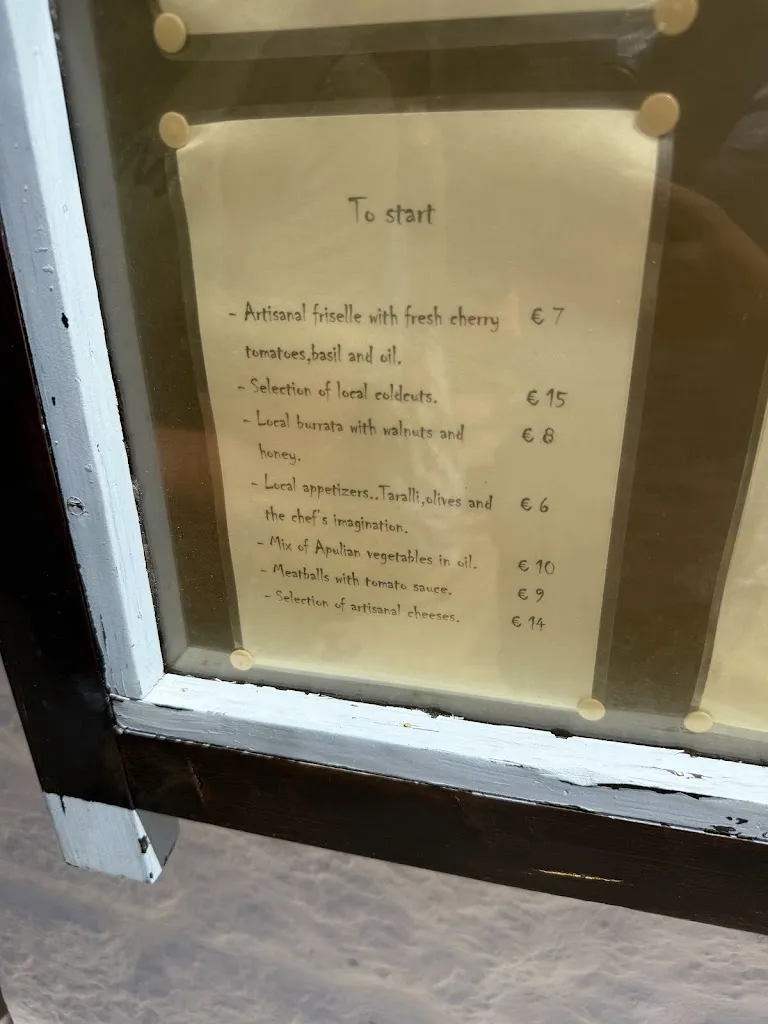 To start
- Artisanal friselle with fresh cherry € 7
tomatoes,basil and oil.
- Selection of local coldcuts. € 15
- Local burrata with walnuts and € 8
honey.
- Local appetizers..Taralli,olives and € 6
the chef's imagination.
- Mix of Apulian vegetables in oil. € 10
- Meatballs with tomato sauce. € 9
- Selection of artisanal cheeses. € 14